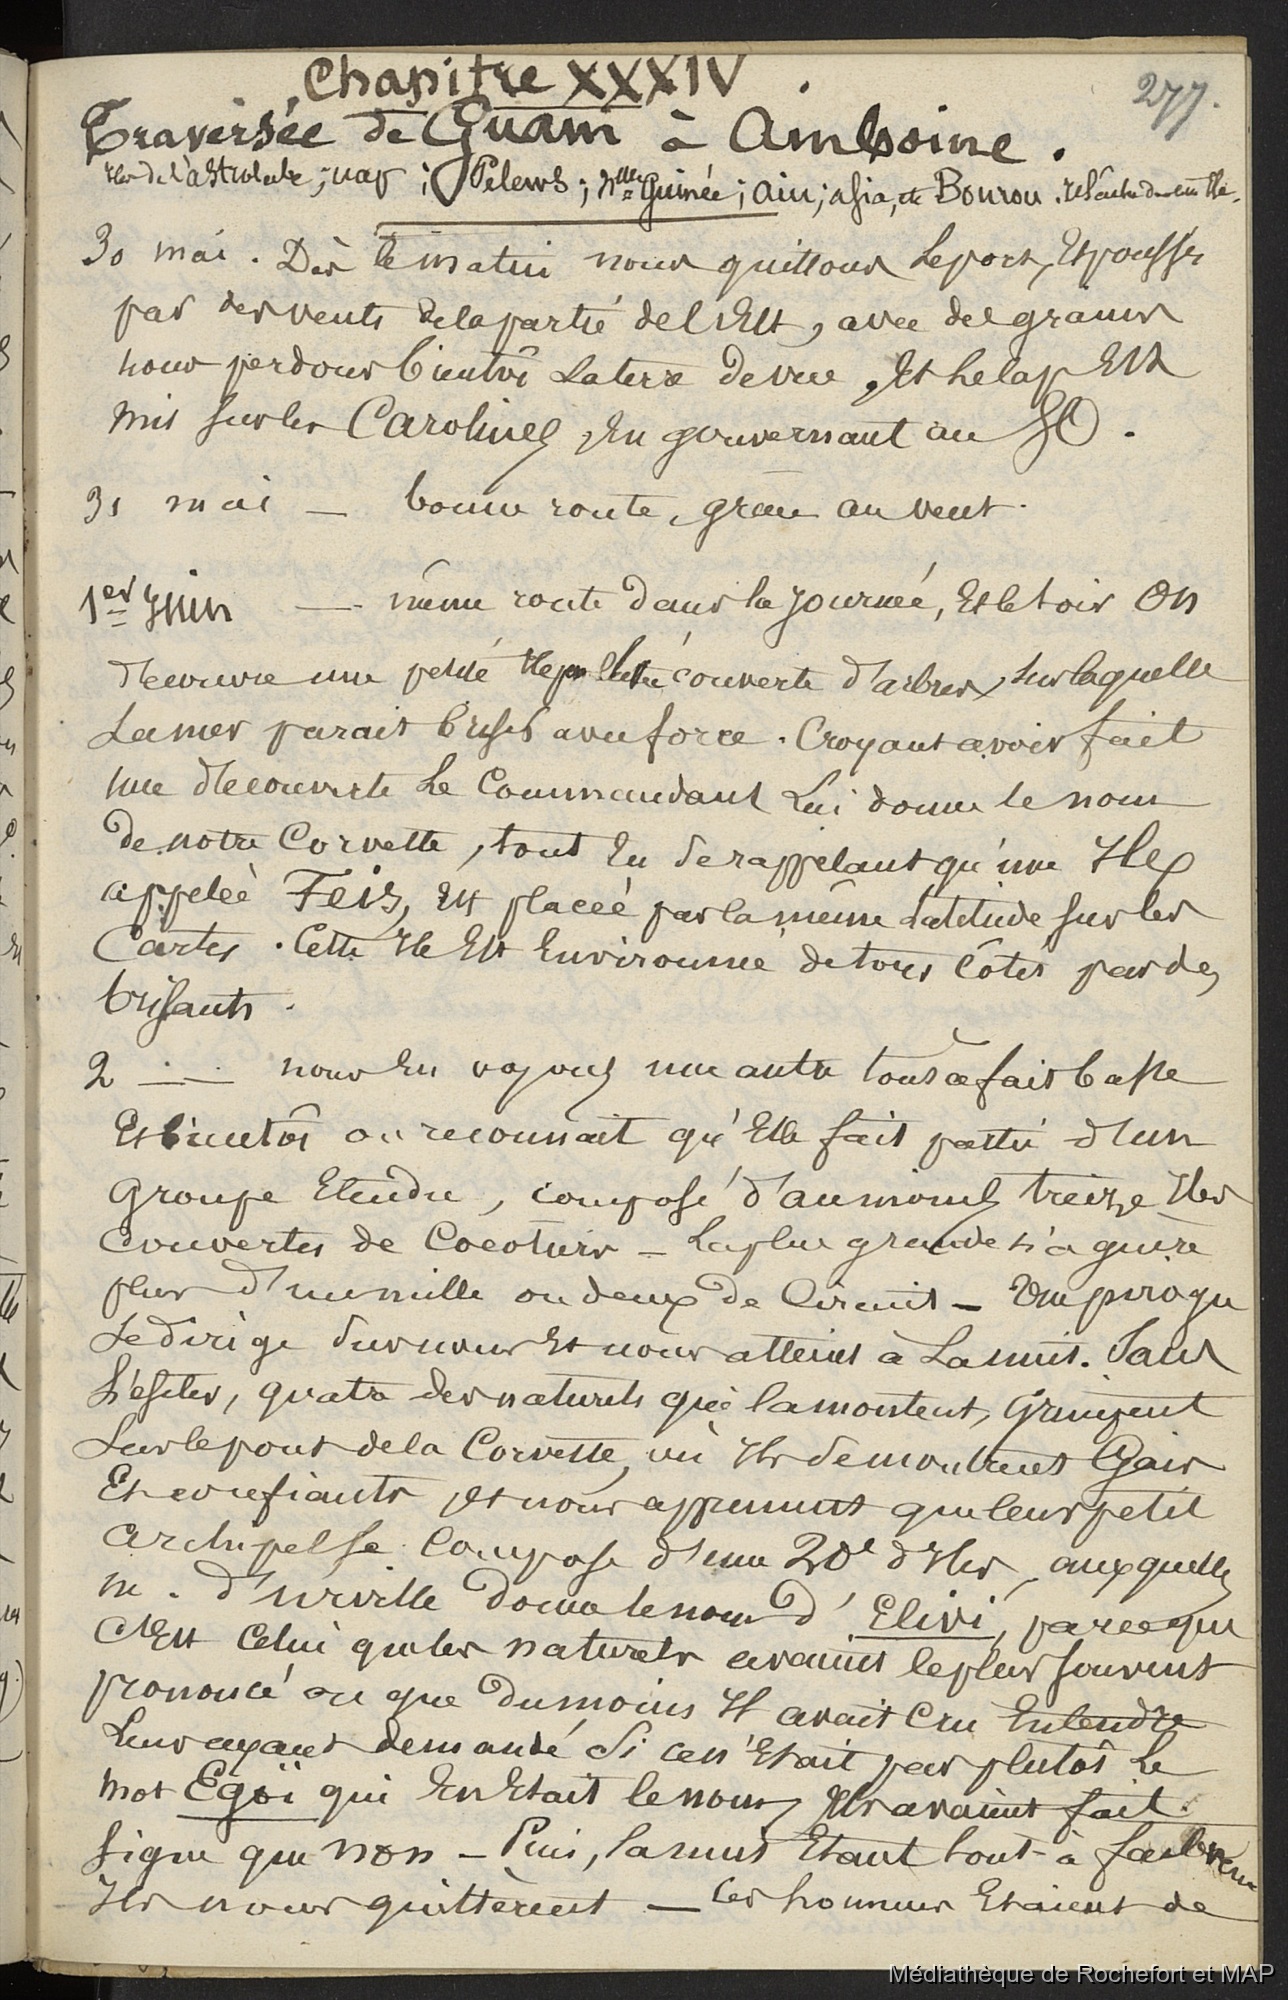 277.
Chapitre XXXIV
Traversée de Guam à Amboine.
Iles de l'astrolabe ; uap ; Pelews ; Nlle Guinée ; aiu ; asia, et Bourou .
30 mai . Dès le matin nous quittons le port, Et poussés
par des vents de la partie de l'Est, avec des grains
nous perdons bientôt la terre de vue , Et le cap Est
mis sur les Carolines , En gouvernant au SO .
31 mai — bonne route, grau au vent .
1er Juin — même route dans la journée, Et le soir On
découvre une petite Ile couverte d'arbres, sur laquelle
La mer parait briser avec force . Croyant avoir fait
une découverte Le Commandant Lui donne le nom
de notre Corvette , tout En se rappelant qu'une Ile
appeleé Feis, Est placeé par la même Latitude sur les
Cartes . Cette Ile Est Environnée de tous côtés par des
brisants .
2 — nous En voyons une autre tout à fait basse
Et bientôt on reconnait qu'Elle fait partie d'un
Groupe Etendu , composé d'au moins treize Iles
Couvertes de Cocotiers — La plus grande n'a guère
plus d'un mille ou deux de Circuit — Une pirogue
Se dirige sur nous Et nous atteint à La nuit . Sans
hésiter, quatre des naturels qui la montent, Grimpent
Sur le pont de la Corvette, où Ils se montrent Gais
Et confiants , Et nous apprennent que leur petit
archipel se Compose d'une 20e d'Iles , auxquelles
m . d'urville donna le nom d' Elivi, parceque
C'Est Celui que les naturels avaient le plus souvent
prononcé ou que du moins Il avait Cru Entendre
Leur ayant demandé Si ce n'Etait pas plutôt Le
Mot Egoï qui En Etait le nom, Ils avaient fait
Signe que non — Puis, la nuit Etant tout-à fait venue
Ils nous quittèrent — Ces hommes Etaient de
Médiathèque de Rochefort et MAP